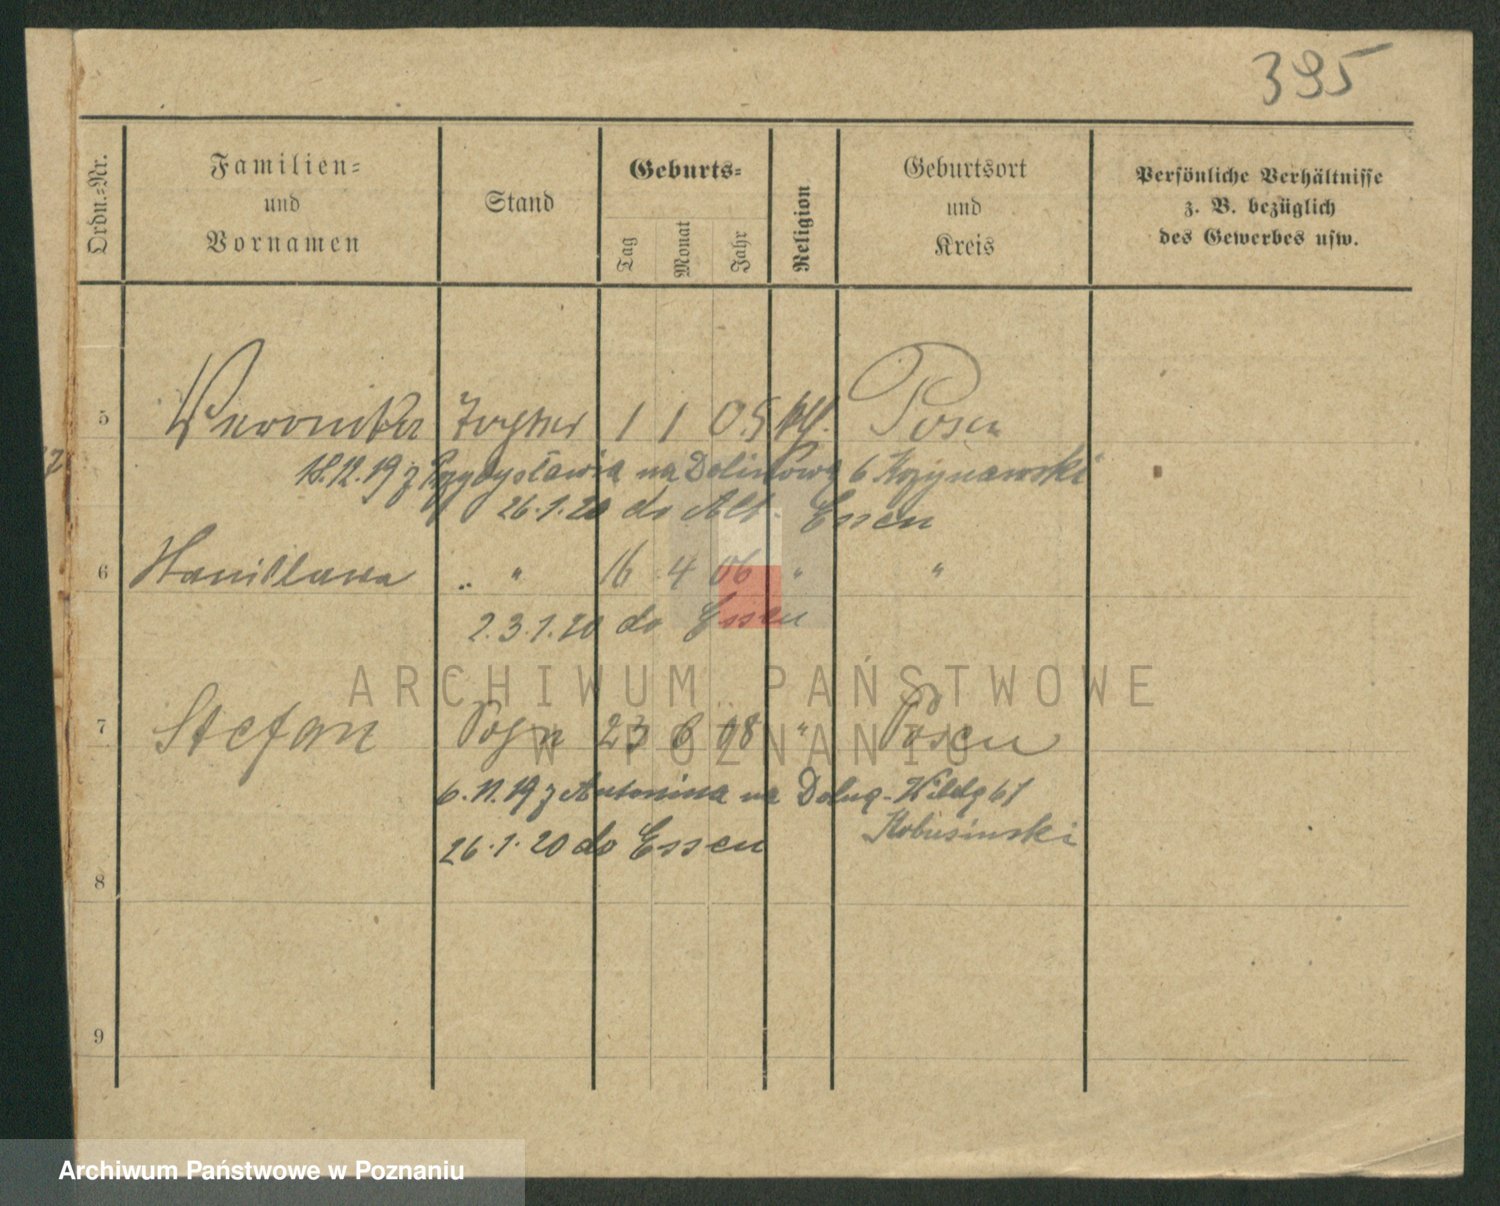 395
Ordn.-Nr. Familien- und Vornamen Stand Geburts- Tag Monat Jahr Religion Geburtsort und Kreis Persönliche Verhältnisse z. B. bezüglich des Gewerbes usw.
5 Veronika Tochter 1 1 05 kth. Posen
18.12.19 z na 6
26.1.20 do Alt. Essen
6 Stanislawa " " 16 4 06 " "
23.1.20 do Essen
ARCHIWUM PAŃSTWOWE
7 Stefan Sohn 23 6 08 " Posen
W POZNANIU
6.11.19 z Antonina na 61
26.1.20 do Essen
8
9
Archiwum Państwowe w Poznaniu